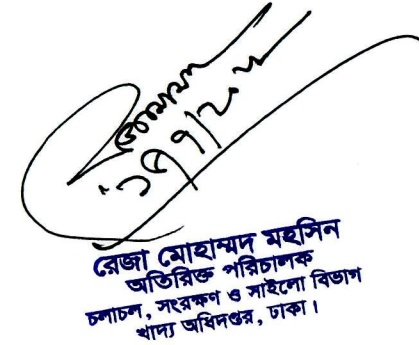 রেজা মোহাম্মদ মহসিন
অতিরিক্ত পরিচালক
চলাচল, সংরক্ষণ ও সাইলো বিভাগ
খাদ্য অধিদপ্তর, ঢাকা।